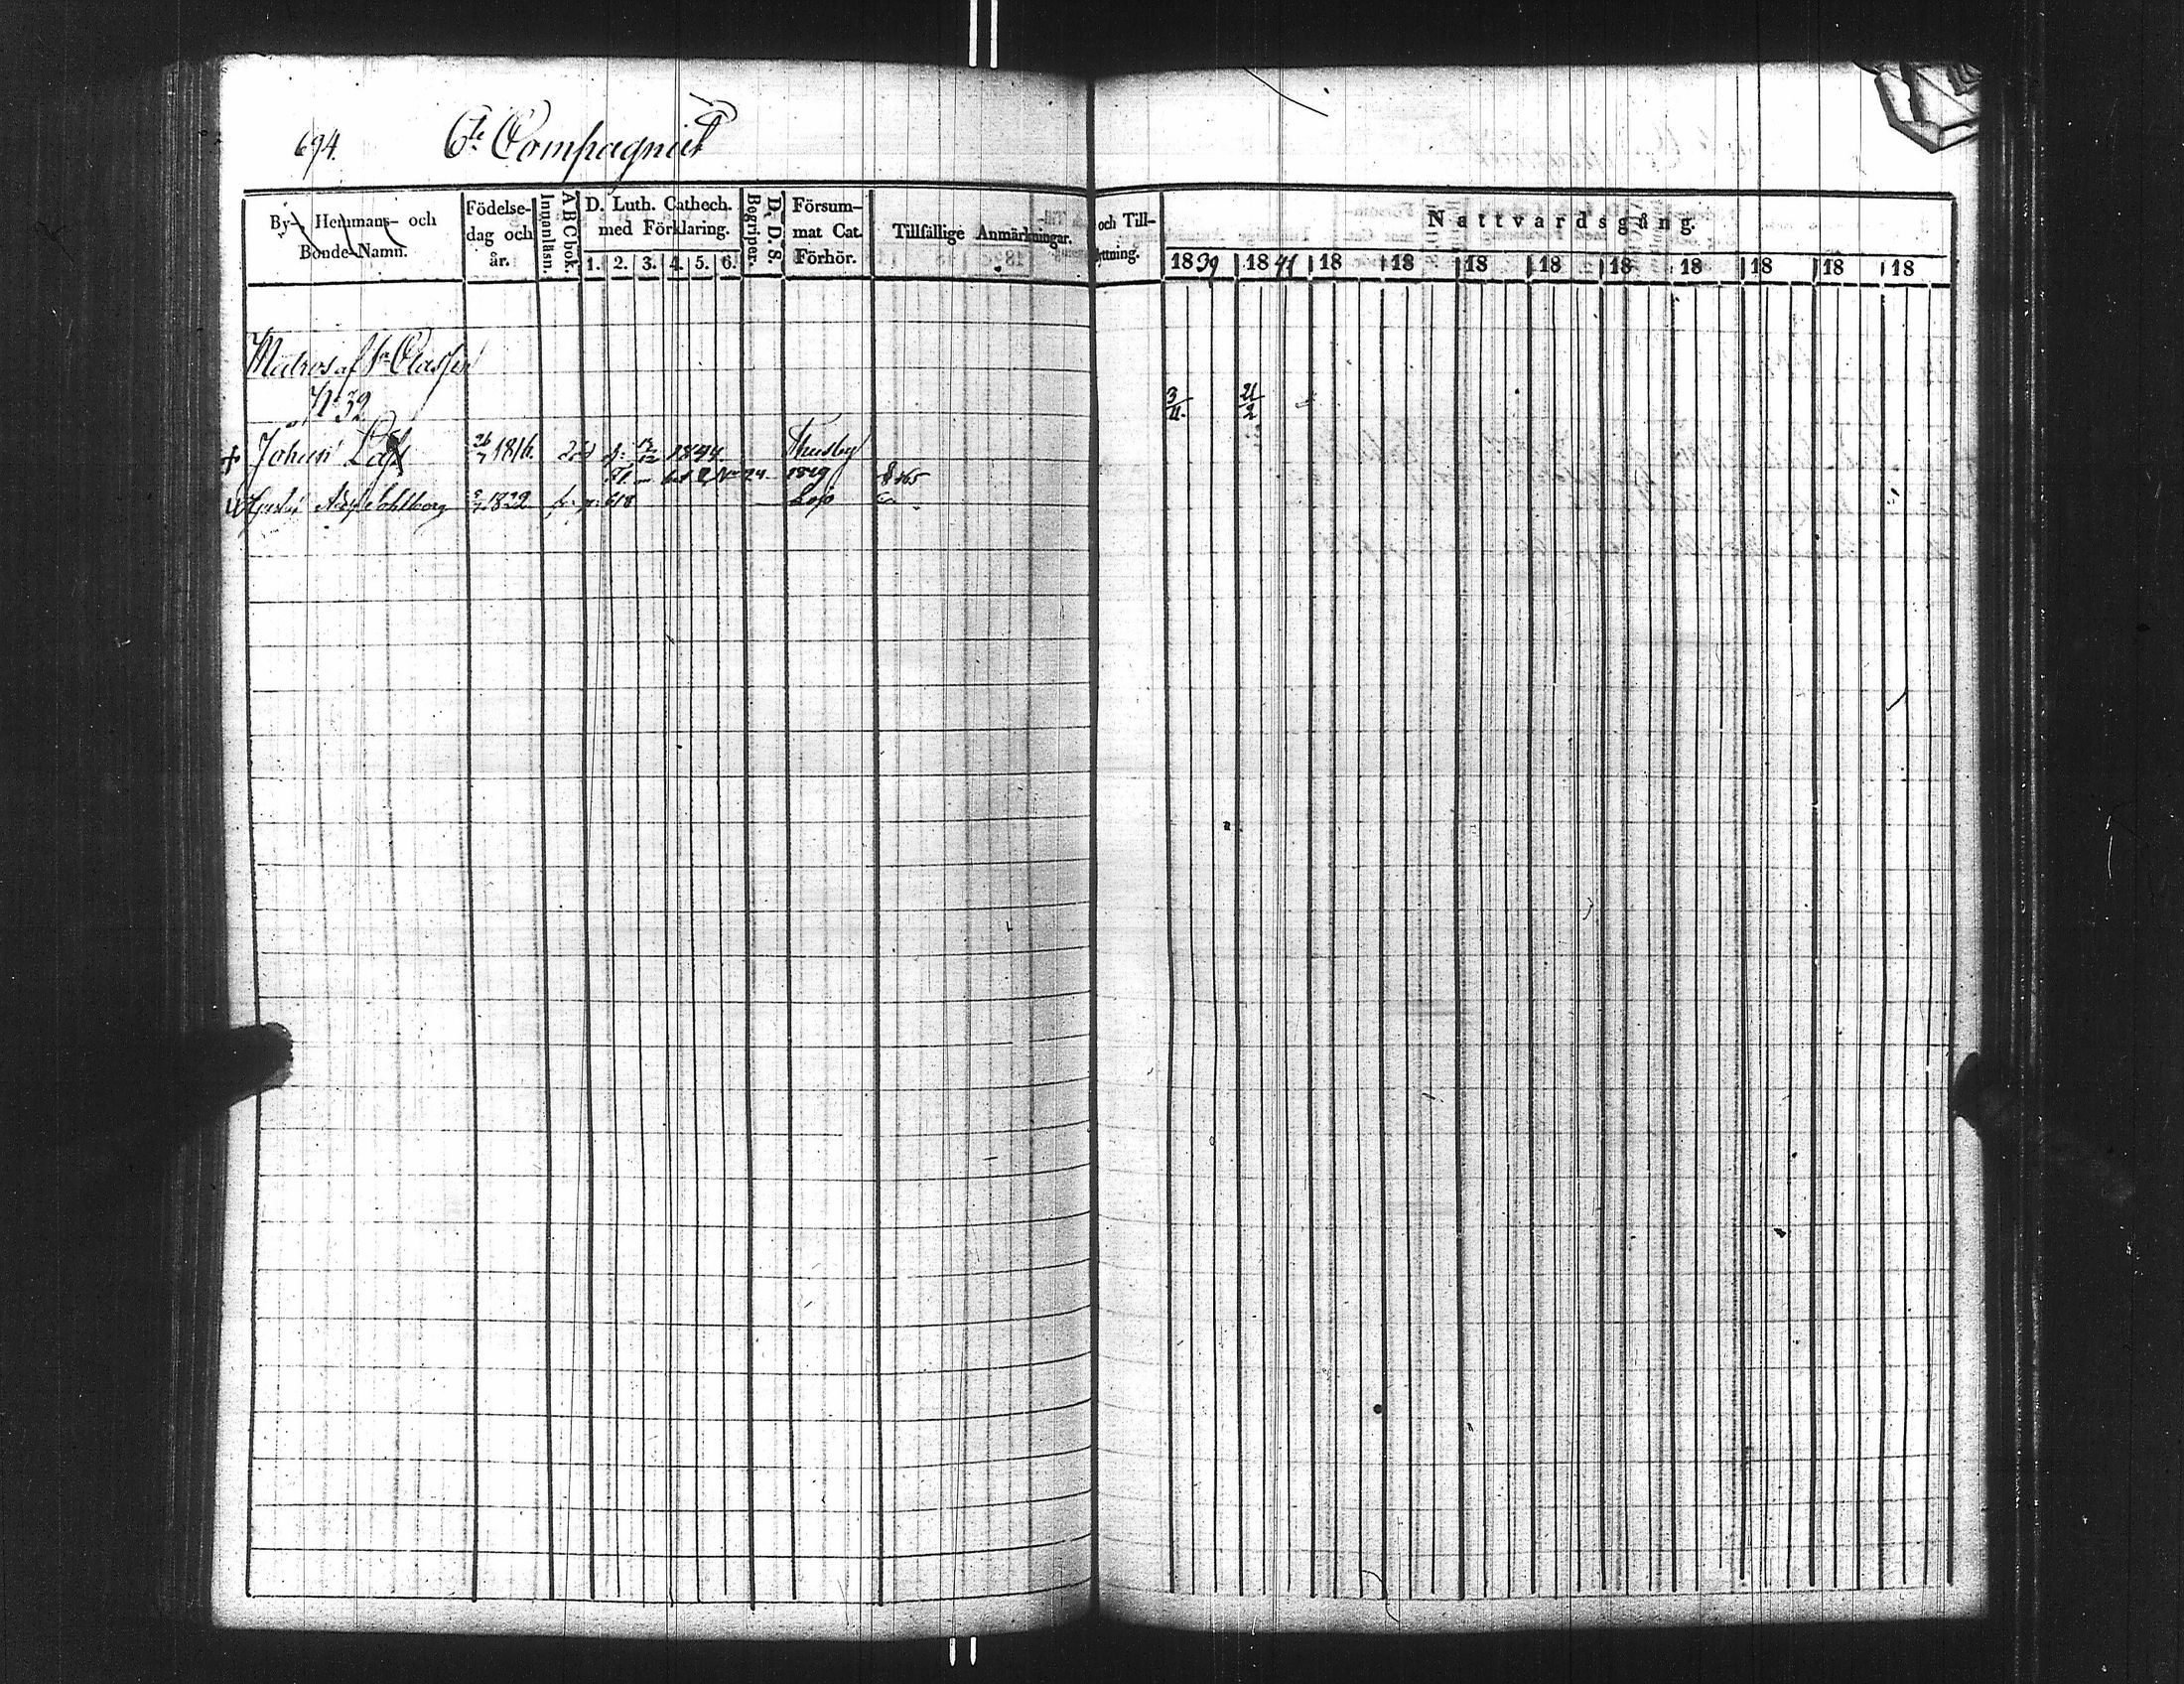 694. 6te Compagniet
By- Hemmans- och Bonde-Namn.
Födelse-dag och år.
Innanläsn.
A B C bok.
D. Luth. Cathech. med Förklaring.
1. 2. 3. 4. 5. 6.
D. D. S.
Begripor.
Försum-mat Cat. Förhör.
Tillfällige Anmärkningar.
och Till-
yttning.
Nattvardsgång.
1839 1841 18 18 18 18 18 18 18 18 18
Matros af 1n Classen
No 32
3/11. 21/2
+ Johan 26/7 1816. 1844 Thusby
No 24 1849 § 465
Gustaf Adolf Sohlborg 1822 p: 618 Lojo